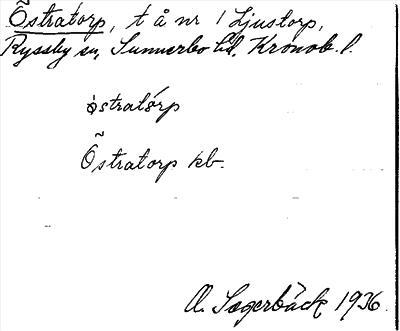 Östratorp, t å nr 1 Ljustorp,
Ryssby sn, Sunnerbo hd, Kronob. l.
östratòrp
Östratorp kb.
A. Sagerbäck 1936.